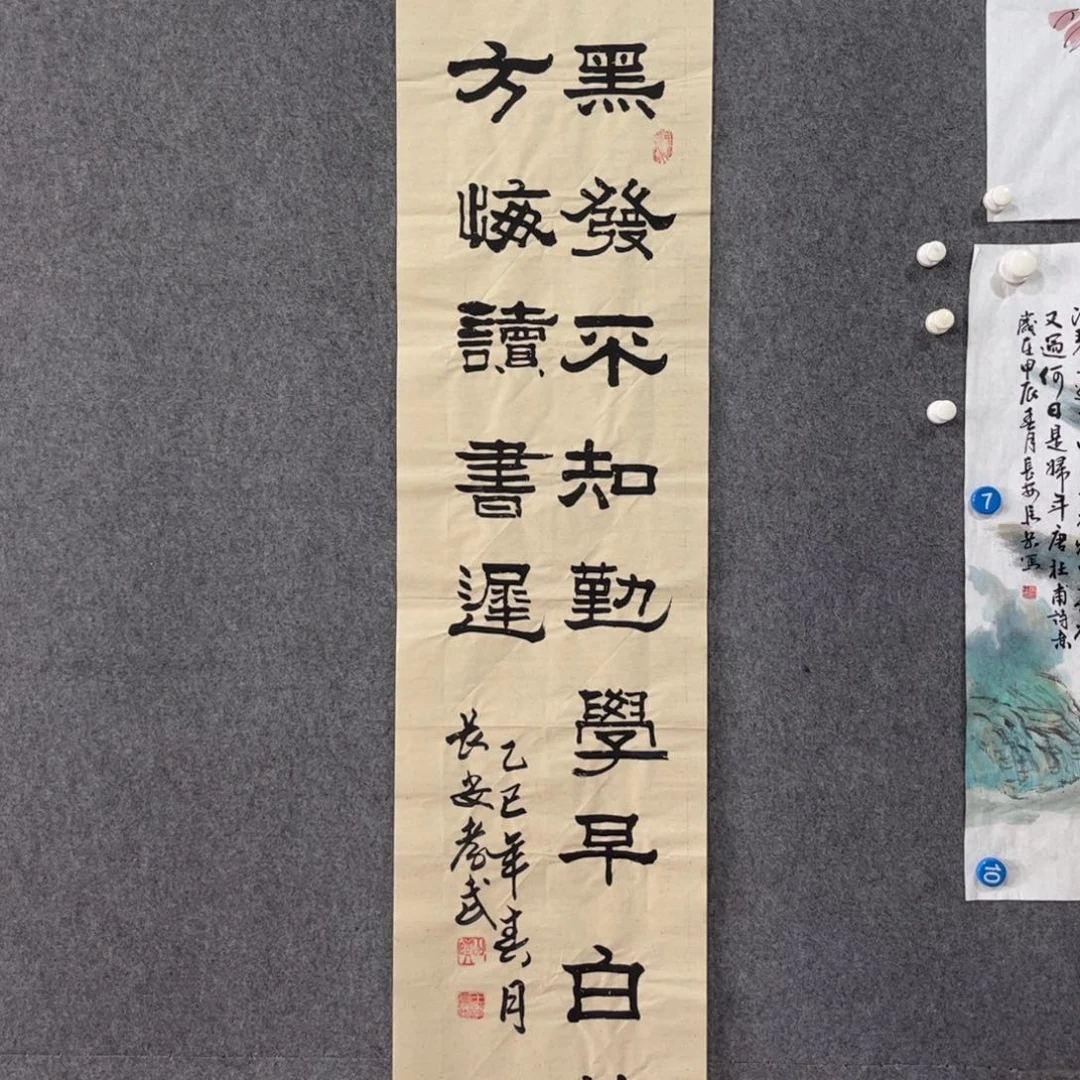 黑發不知勤學早白
方悔讀書遲
乙巳年春月
長安孝武
又過何日是歸年唐杜甫詩意
歲在甲辰春月長安
7
10